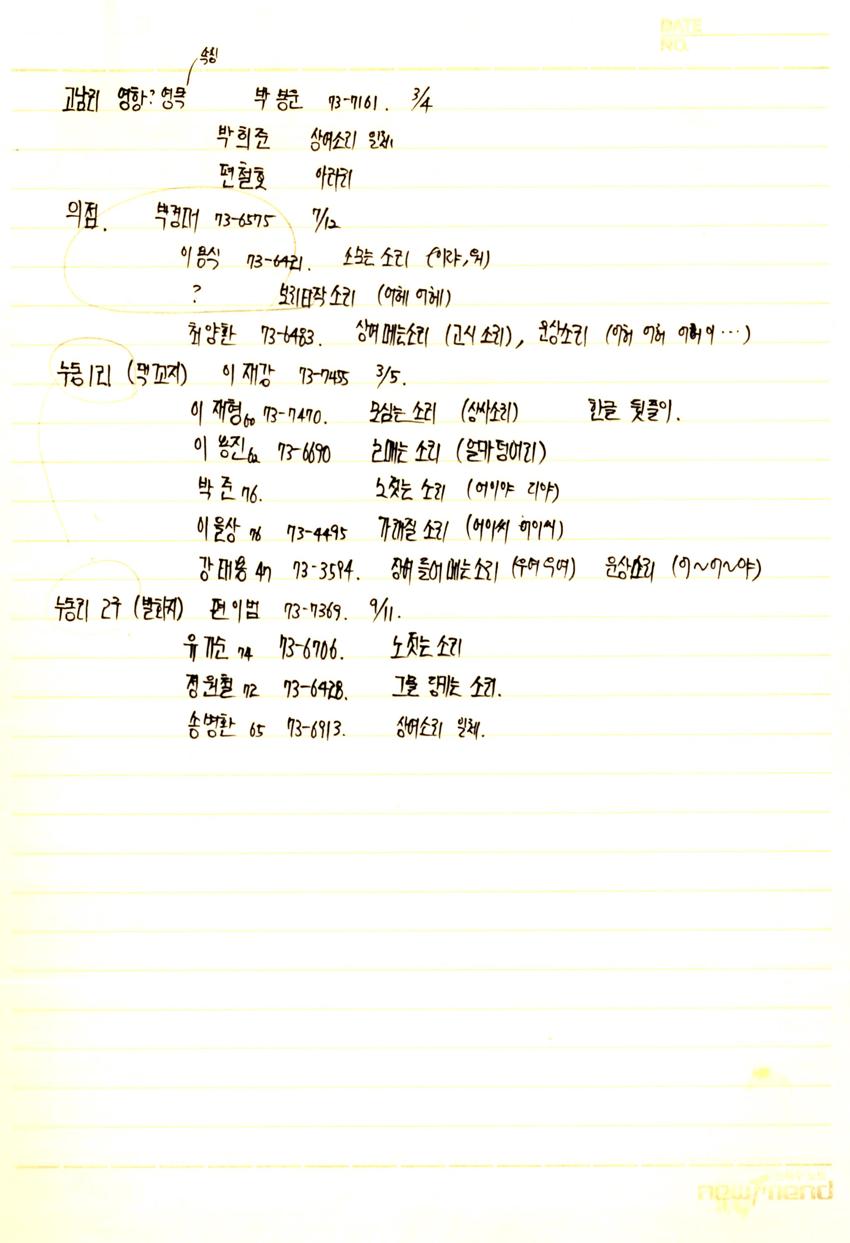 DATE
NO.
속칭
고남리 영항? 영목 박봉순 73-7161. 3/4
박희준 상여소리 일체
편철호 아라리
의점. 박경대 73-6575 7/12
이용식 73-6421. 소모는 소리 (이랴, 워)
? 보리타작소리 (어헤 어헤)
최양환 73-6483. 상여 메는소리 (고시 소리), 운상소리 (어허 어허 어허이 …)
누동1리 이재강 73-7455 3/5.
이재형 60 73-7470. 모심는 소리 (상사소리) 한글 뒷풀이.
이용진 62 73-6690 논매는 소리 (얼카덩어리)
박준 76. 노젓는 소리 (어이야 디야)
이을상 76 73-4495 가래질 소리 (어이씨 어이씨)
강태용 47 73-3594. 들어 메는소리 (우여 우여) 운상소리 (어~어~야)
누동리 2구 편이범 73-7369. 9/11.
유가순 74 73-6706. 노젓는 소리
정원철 72 73-6428. 그물 당기는 소리.
송병환 65 73-6913. 상여소리 일체.
newfriend